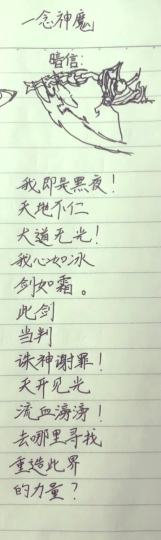 一念神魔
暗信:
我即是黑夜!
天地不仁
大道无光!
我心如冰
剑如霜。
此剑
当判
诛神谢罪!
天开见光
流血滂滂!
去哪里寻找
重造此界
的力量?